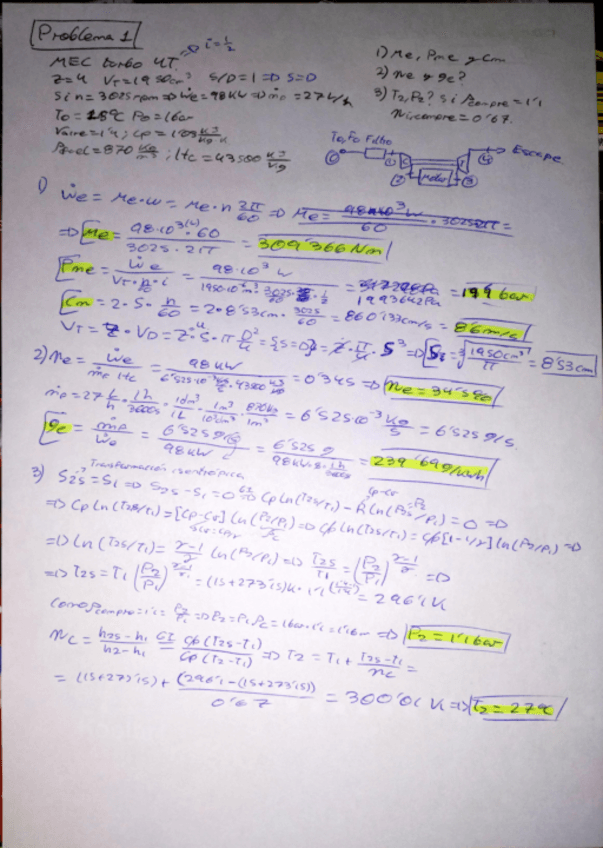 Problema 1
MEC turbo 4T. → i=1/2
Z=4 VT=1950cm³ S/D=1 ⇒ S=D
Si n=3025rpm ⇒ Ẇe=98KW ⇒ ṁf=27L/h
T0=18ºC P0=1bar
γaire=1'4; Cp=
ρfuel=870 kg/m³; Hc=43500 kJ/kg
1) Me, Pme y Cm
2) ηe y ge?
3) T2, P2? Si ρcompre=1'1
ηi,compre=0'67.
T0,P0 Filtro
Motor
Escape
1) Ẇe = Me·ω = Me·n 2π/60 ⇒
⇒ Me = 98·10³(W)·60 / 3025·2π = 309'366Nm
Pme = Ẇe / VT·n/60·i = 98·10³ W / 1950·10⁻⁶m³·3025/60·1/2 = 1993642Pa = 19'9 bar
Cm = 2·S·n/60 = 2·8'53cm·3025/60 = 860'133cm/s = 8'6m/s
VT = Z·VD = Z·S·π D²/4 = {S=D} = Z·π/4·S³ ⇒ S = ∛(1950cm³/π) = 8'53cm
2) ηe = Ẇe / ṁf Hc = 98KW / 6'525·10⁻³ kg/s·43500 kJ/kg = 0'345 ⇒ ηe=34'5%
ṁf = 27 L/h · 1h/3600s · 1dm³/1L · 1m³/10³dm³ · 870kg/1m³ = 6'525·10⁻³ kg/s = 6'525 g/s.
ge = ṁf/Ẇe = 6'525 g/s / 98KW = 6'525 g / 98KW·s·1h/3600s = 239'69g/kWh
3) → Transformación isentrópica
S2s=S1 ⇒ S2s-S1=0 ⇒ Cp ln(T2s/T1) - R ln(P2/P1) = 0 ⇒
⇒ Cp ln(T2s/T1) = [Cp-Cv] ln(P2/P1) ⇒ Cp ln(T2s/T1) = Cp[1-1/γ] ln(P2/P1) ⇒
⇒ ln(T2s/T1) = γ-1/γ ln(P2/P1) ⇒ T2s/T1 = (P2/P1)^(γ-1/γ) ⇒
⇒ T2s = T1 (P2/P1)^(γ-1/γ) = (15+273'15)K·1'1 = 296'1 K
Como ρcompre=1'1 = P2/P1 ⇒ P2=P1·ρc=1bar·1'1=1'1bar ⇒ P2=1'1bar
ηc = h2s-h1 / h2-h1 = Cp(T2s-T1) / Cp(T2-T1) ⇒ T2 = T1 + T2s-T1 / ηc =
= (15+273'15) + (296'1-(15+273'15)) / 0'67 = 300'01 K ⇒ T2=27ºC